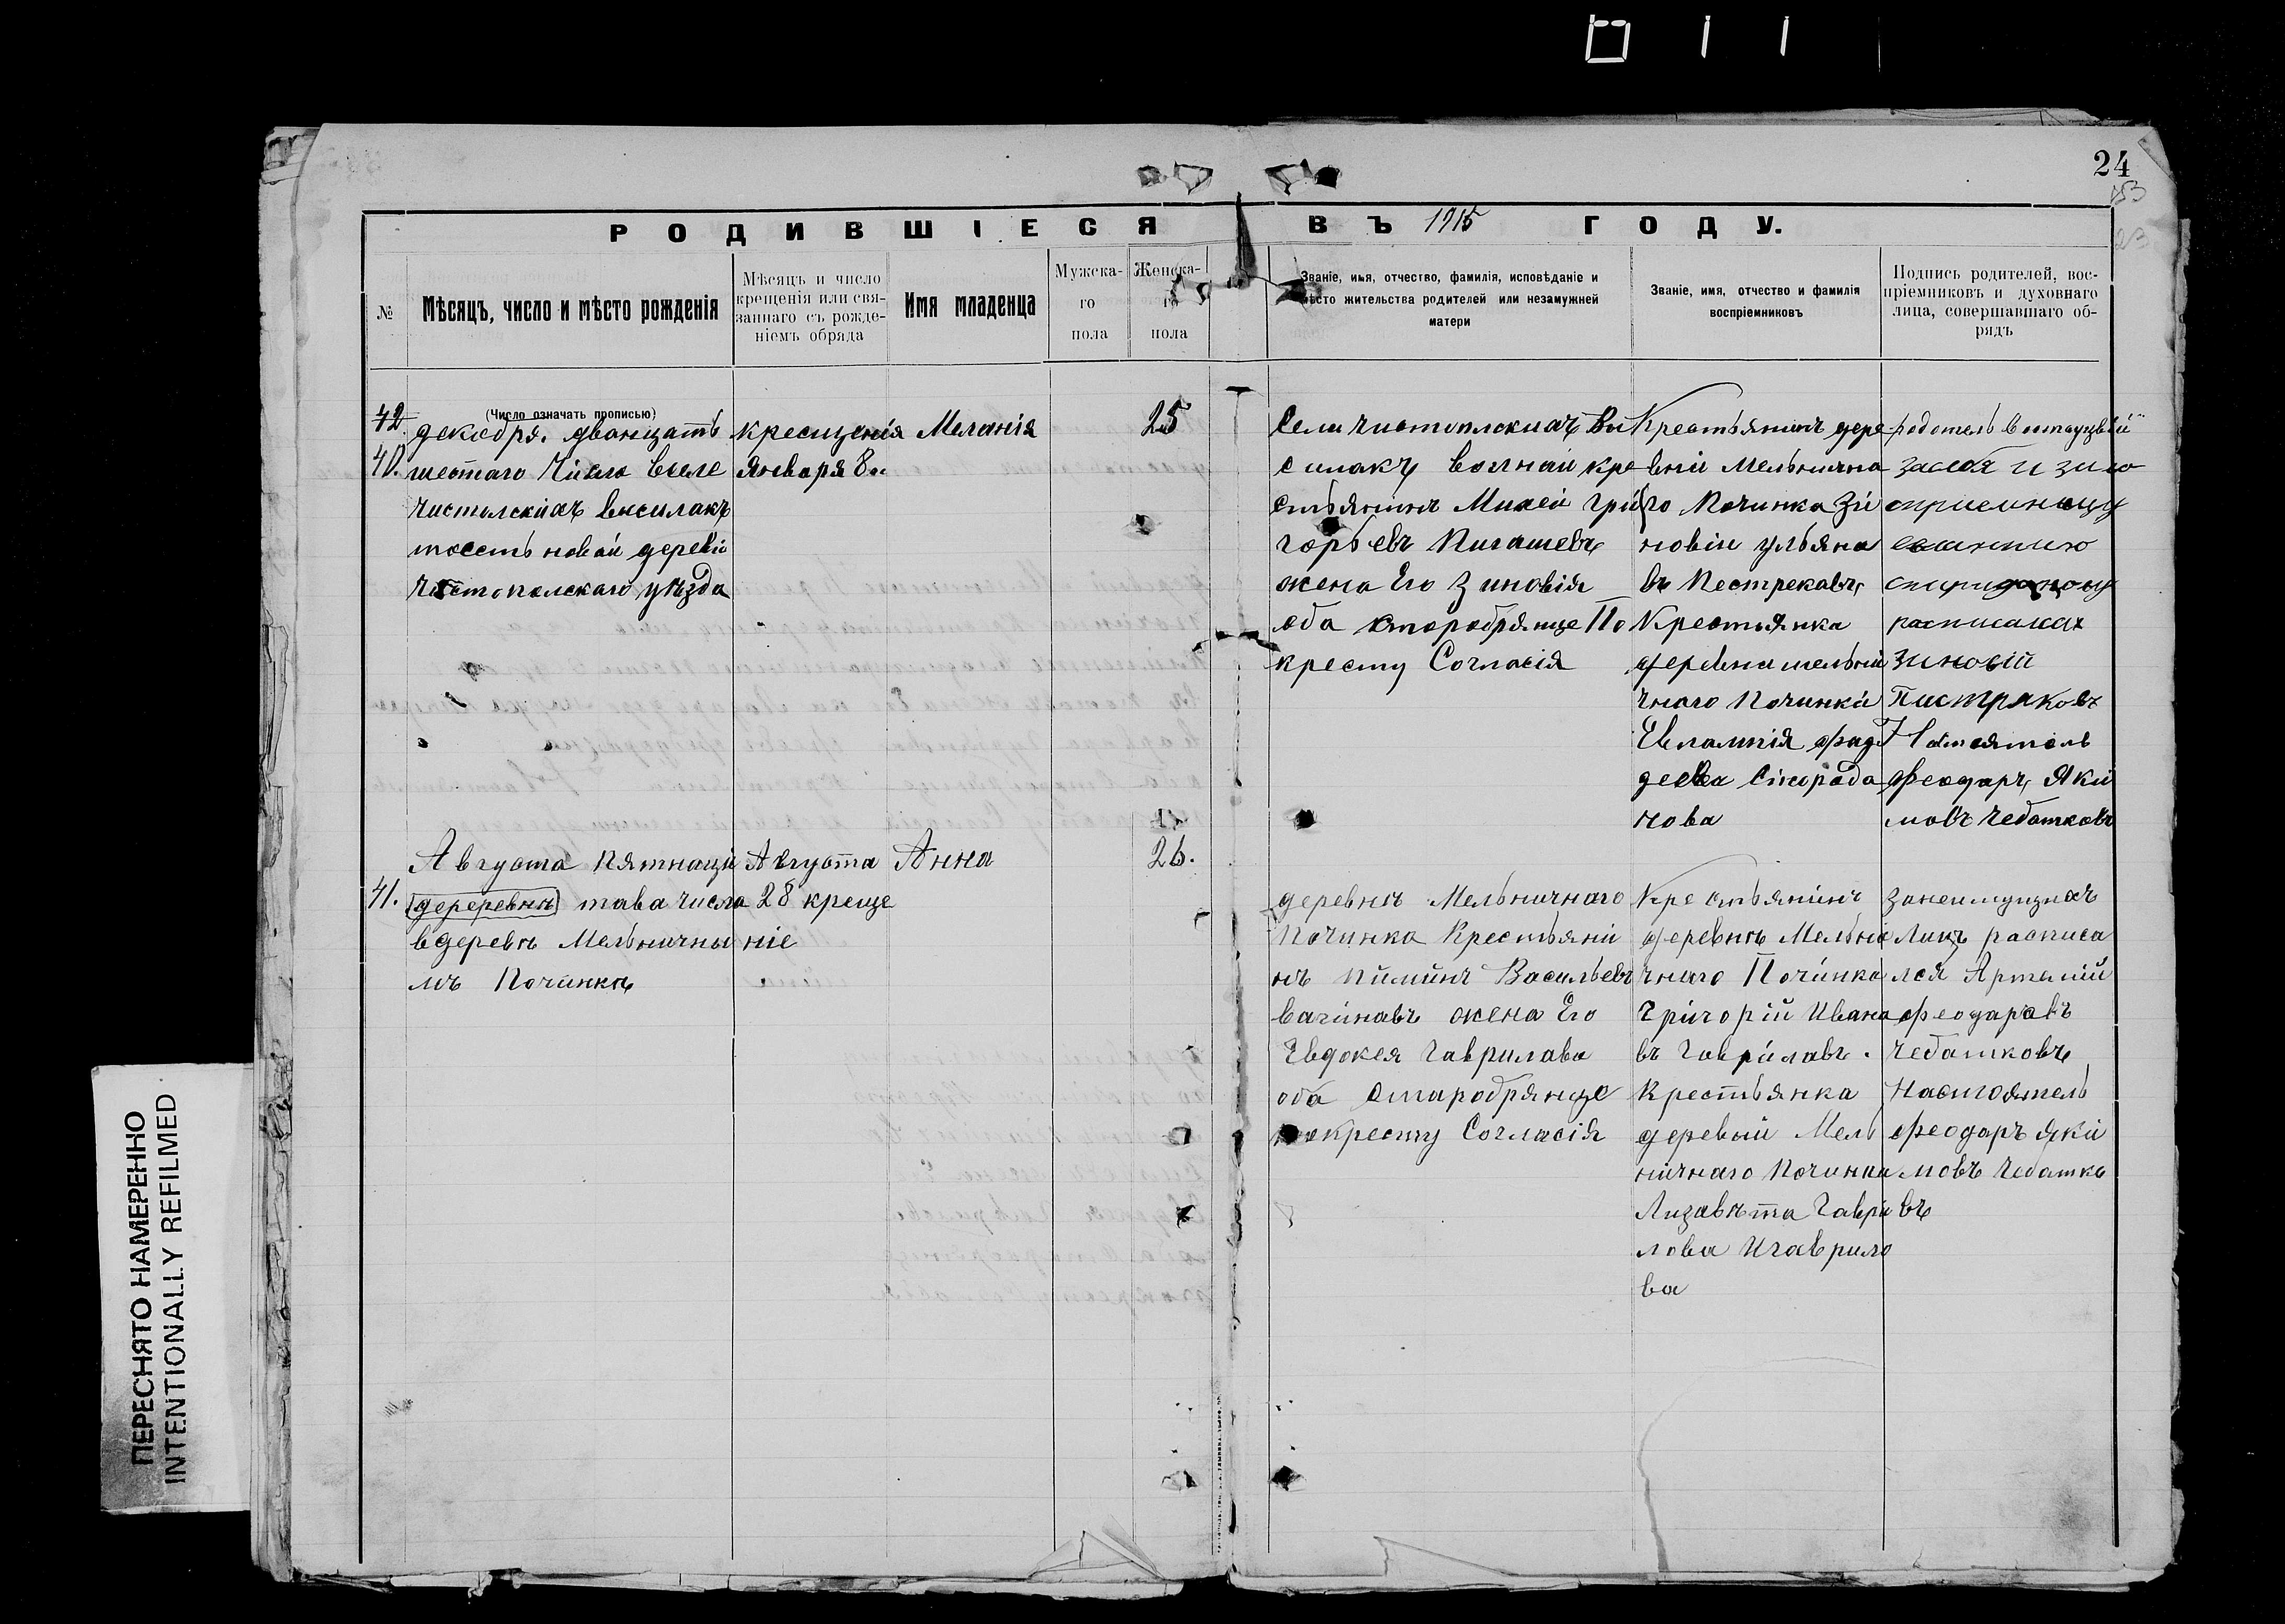 24
РОДИВШІЕСЯ ВЪ 1915 ГОДУ.
№
Мѣсяцъ, число и мѣсто рожденія
Мѣсяцъ и число
крещенія или свя-
заннаго съ рожде-
ніемъ обряда
Имя младенца
Мужска-
го
пола
Женска-
го
пола
Званіе, имя, отчество, фамилія, исповѣданіе и
мѣсто жительства родителей или незамужней
матери
Званіе, имя, отчество и фамилія
воспріемниковъ
Подпись родителей, вос-
пріемниковъ и духовнаго
лица, совершавшаго об-
рядъ
(Число означать прописью)
42
40.
декабря. дванцать
шестаго Числа вселе
Чистолскихъ высилакъ
тоесть новай деревіи
Чистополскаго уѣзда
крещенія
Января 8.
Меланія
25
Сели чистополскихъ Вы
силакъ волнай кре
стьянинъ Михей Гри
горьевъ Кигашевъ
жена Его Зиновія
оба старобрянце По
кресту Согласія
Крестьянинъ дере
вніи Мельнична
го Починка Зи
новіи ульяна
въ Пестрековъ
Крестьянка
деревни мельни
чнаго Починки
Евлампія фад
деева Спирада
нова
родотель
засебя и зино
оприемницу
евлампию
спиридонову
расписалах
зиновій
Пистряковъ
Настоятель
феодаръ Яки
мовъ Чебатковъ
41.
Августа пятнаци
дереревнѣ тава числа
вдеревнѣ Мельничны
мъ Починкѣ
Августа
28 креще
ніе
Анна
26.
деревнѣ Мельничнаго
Починка Крестьяни
нъ Пиминъ Васильевъ
Вагинавъ жена Его
Евдокея Гаврилава
оба старобрянце
покресту Согласія
Крестьянинъ
деревнѣ Мельни
чнаго Починка
Григорій Ивано
въ Гаврилавъ.
Крестьянка
деревый Мель
ничнаго Починка
Лизавѣта Гаври
лова Игаврило
ва
Занеимущихъ
Лицъ расписа
лся Арталій
феодаровъ
Чебатковъ
Настоятель
феодаръ Яки
мовъ Чебатко
въ
ПЕРЕСНЯТО НАМЕРЕННО
INTENTIONALLY REFILMED